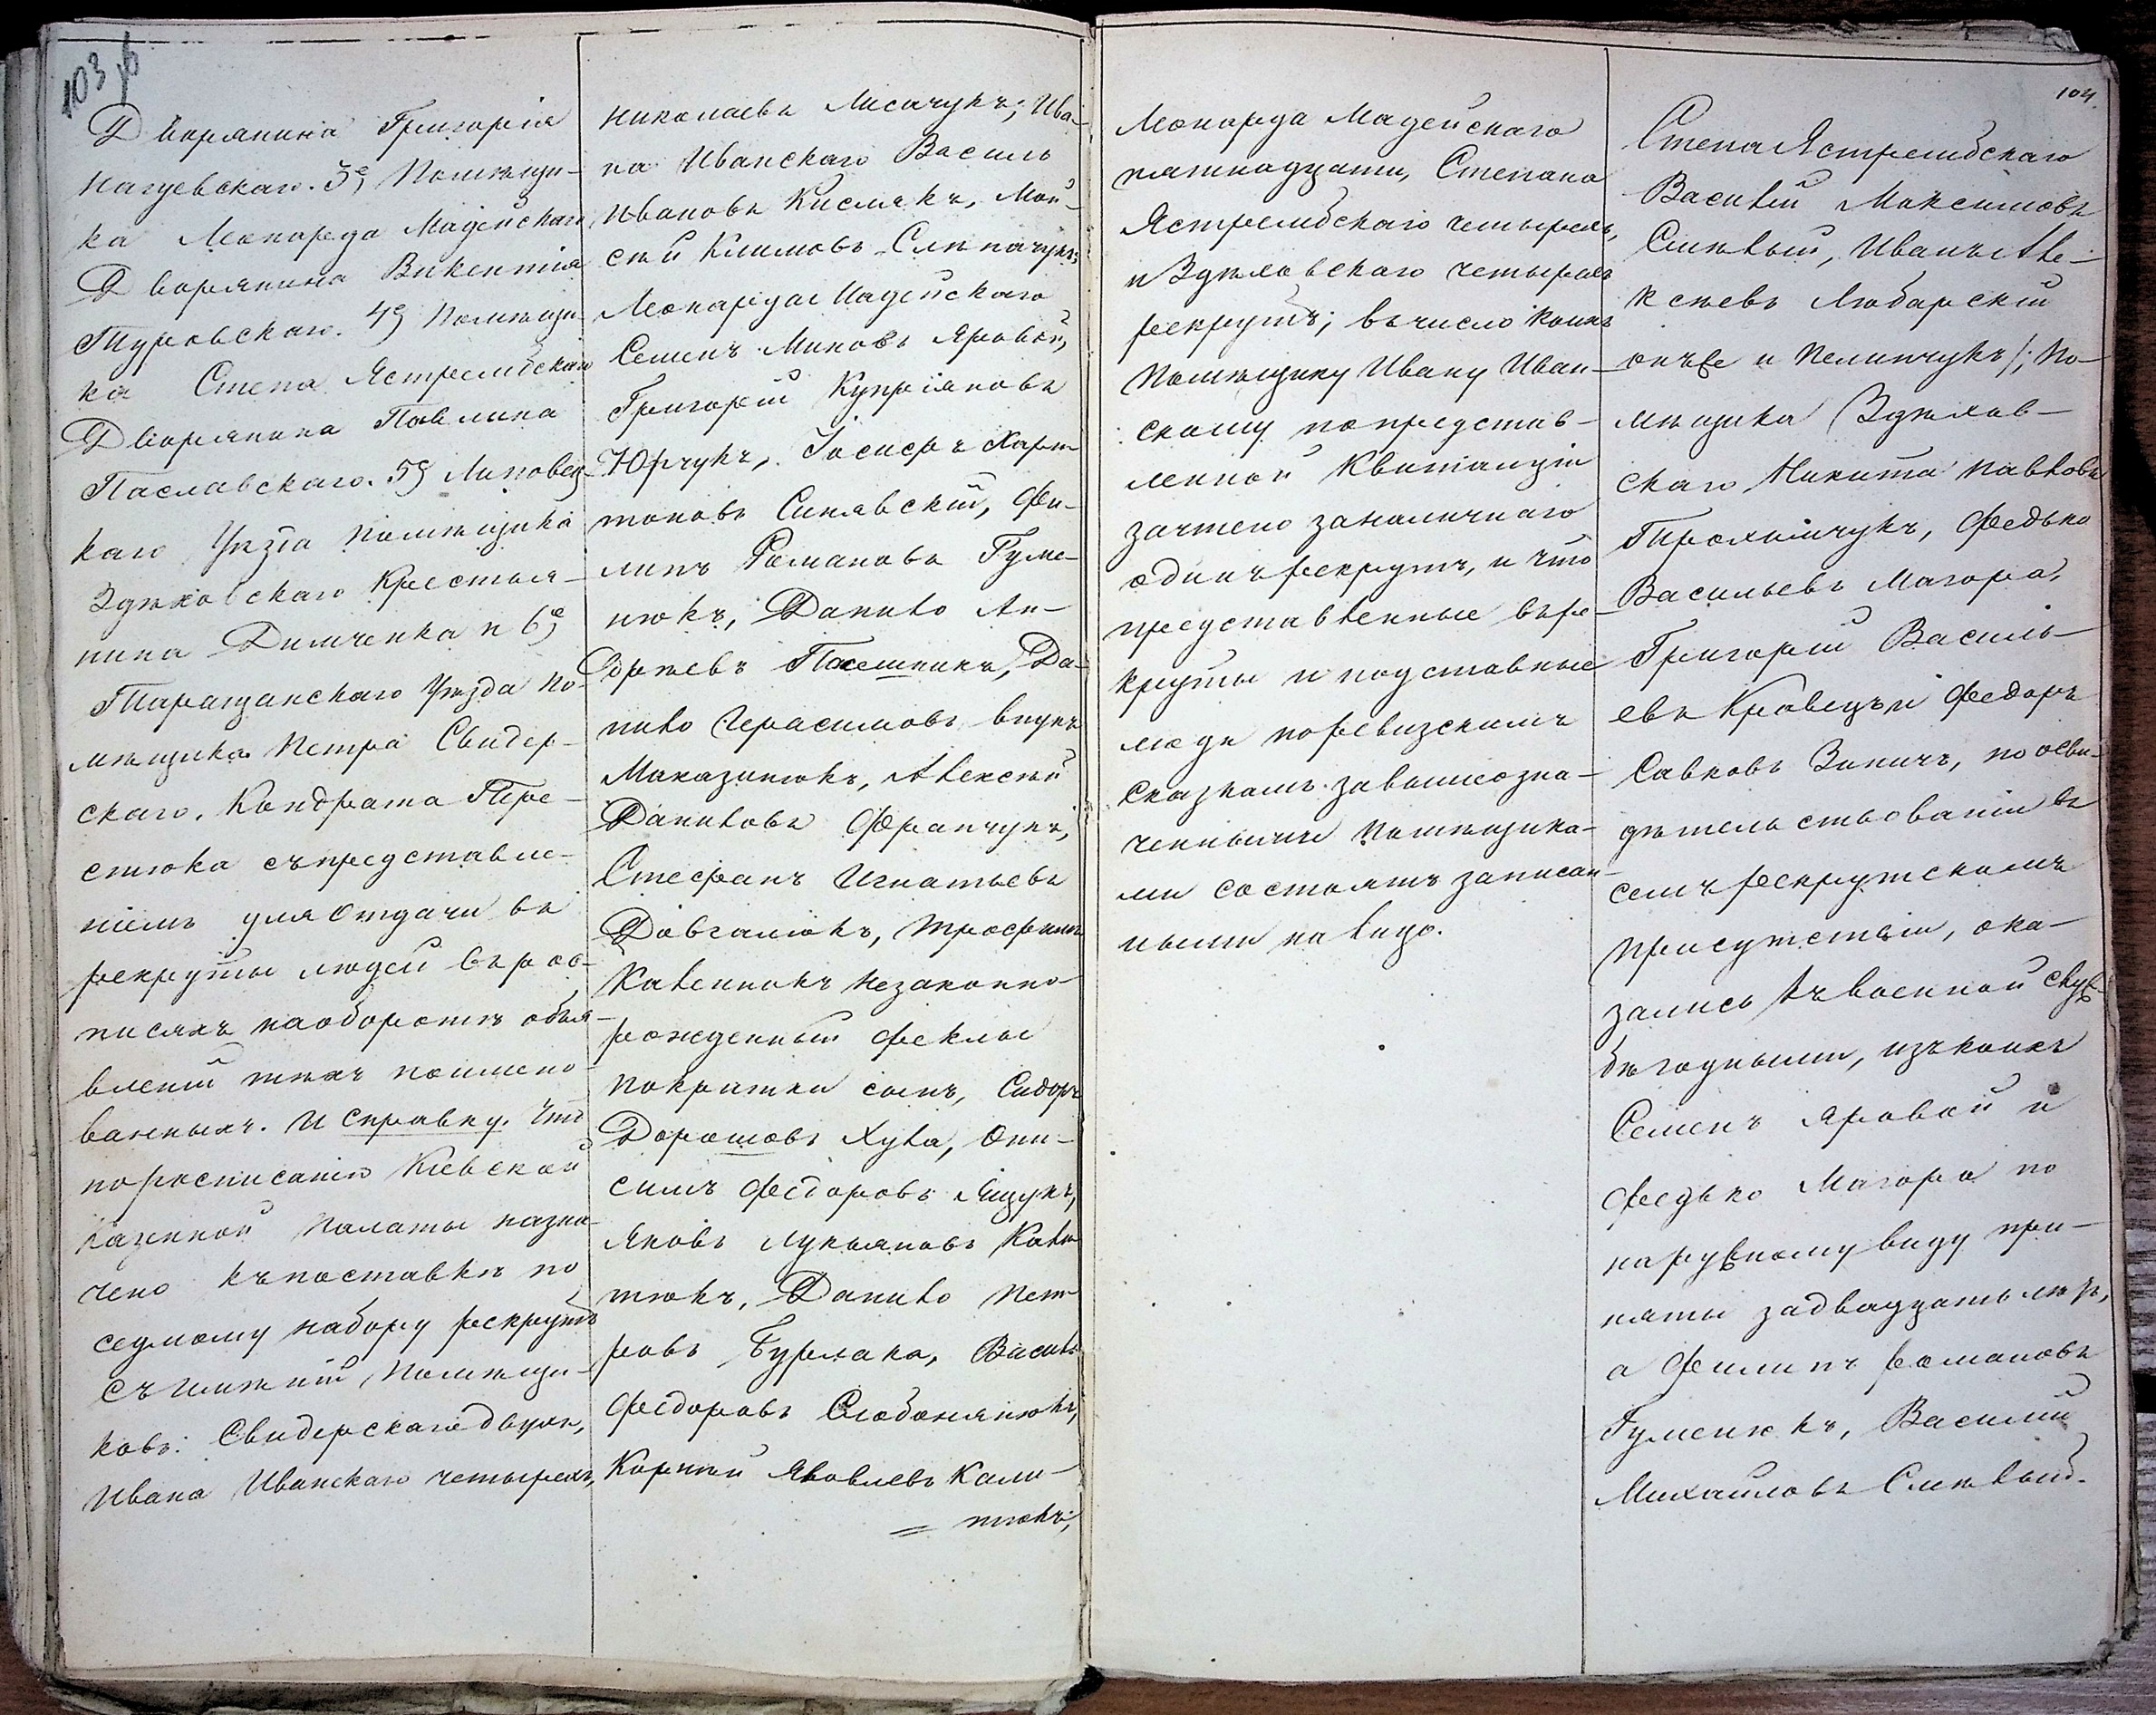 103 об
Дворянина Григорія
Нагуевскаго. 3е, Помѣщи-
ка Леонарда Мадейскаго
Дворянина Викентія
Туровскаго. 4е, Помѣщи-
ка Степа Ястрембскаго
Дворянина Павлина
Паславскаго. 5е, Липовец-
каго Уѣзда помѣщика
Здѣховскаго Крестья-
нина Димченка и 6е,
Таращанскаго Уѣзда по-
мѣщика Петра Свидер-
скаго, Кондрата Пре-
стюка съ представле-
ніемъ для отдачи въ
рекруты людей въ рос-
писяхъ на оборотѣ объя-
вленій тѣхъ поимено-
ванныхъ. И справку. Что
по росписанію Кіевской
Казенной Палаты назна-
чено къ поставкѣ по
седмому набору рекрутъ
съ имѣній, Помѣщи-
ковъ: Свидерскаго двухъ,
Ивана Иванскаго четырехъ,
Николаевъ Лисичукъ; Ива-
на Иванскаго Василь
Ивановъ Кислякъ, Мой-
сѣй Климовъ Слѣпачукъ;
Леонарда Мадейскаго
Семенъ Миновъ Яровой,
Григорій Купріяновъ
Юрчукъ, Іосифъ Хари-
тоновъ Синявскій, Фи-
липъ Романовъ Гуме-
нюкъ, Данило Ан-
дреевъ Пасешникъ, Да-
нило Герасимовъ внукъ
Маказинюкъ, Алексѣй
Даниловъ Франчукъ,
Стефанъ Игнатьевъ
Довгалюкъ, Трофимъ
Каленикъ незаконно-
рожденный Феклы
Покрытки сынъ, Сидоръ
Дорошовъ Хула, Они-
симъ Федоровъ Ящукъ,
Яковъ Лукьяновъ Кали-
тюкъ, Данило Пет-
ровъ Бурлака, Василь
Федоровъ Слободянюкъ,
Корній Яковлевъ Кали-
= тюкъ;
Леонарда Мадейскаго
пятнадцати, Степана
Ястрембскаго четырехъ,
и Здѣховскаго четырехъ
рекрутъ; въ число коихъ
Помѣщику Ивану Иван-
скому по представ-
ленной Квитанціи
зачтено за наличнаго
одинъ рекрутъ, и что
представленные въ ре-
круты и подставные
люди по ревизскимъ
сказкамъ за вышеозна-
ченными помѣщика-
ми состоятъ записан-
ными на лицо.
104.
Степа Ястрембскаго
Василій Максимовъ
Смѣлый, Иванъ Але-
ксѣевъ Любарскій
онъ же и Пелипчукъ/; По-
мѣщика Здѣхов-
скаго, Никита Павловъ
Трохимчукъ, Федько
Васильевъ Магора,
Григорій Василь-
евъ Кравецъ и Федоръ
Савковъ Зиничъ, по осви-
дѣтельствованіи въ
семъ Рекрутскомъ
присутствіи, ока-
зались къ военной служ-
бѣ годными, изъ коихъ
Семенъ Яровой и
Федько Магора по
наружному виду при-
няты за двадцать лѣтъ,
а Филипъ Романовъ
Гуменюкъ, Василій
Михайловъ Смѣлый